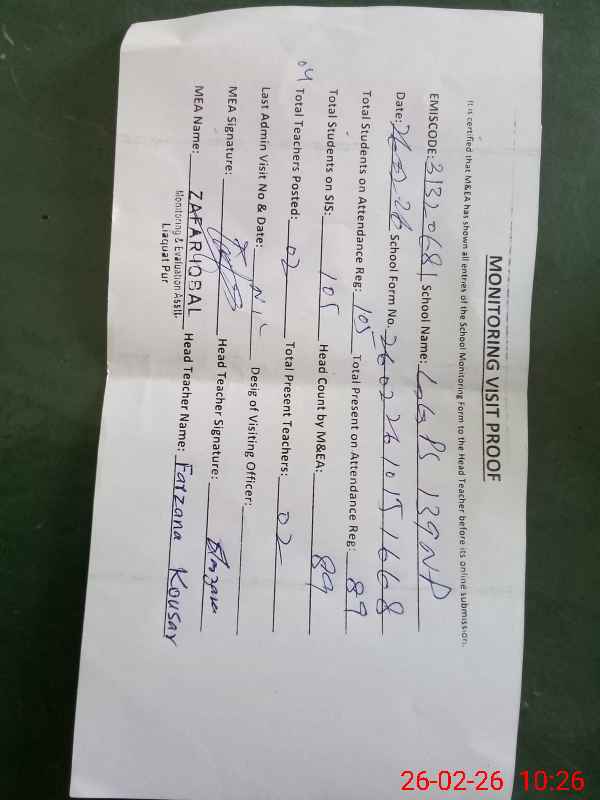 MONITORING VISIT PROOF
It is certified that M&EA has shown all entries of the School Monitoring Form to the Head Teacher before its online submission.
EMISCODE: 31320681 School Name: GGPS 139NP
Date: 26.02.26 School Form No. 26022610151668
Total Students on Attendance Reg: 105 Total Present on Attendance Reg: 89
Total Students on SIS: 105 Head Count by M&EA: 89
04 Total Teachers Posted: 02 Total Present Teachers: 02
Last Admin Visit No & Date: Nil Desig of Visiting Officer:
MEA Signature: Head Teacher Signature: Farzana
MEA Name: ZAFAR IQBAL Head Teacher Name: Farzana Kousar
Monitoring & Evaluation Assitt
Liaquat Pur
26-02-26 10:26